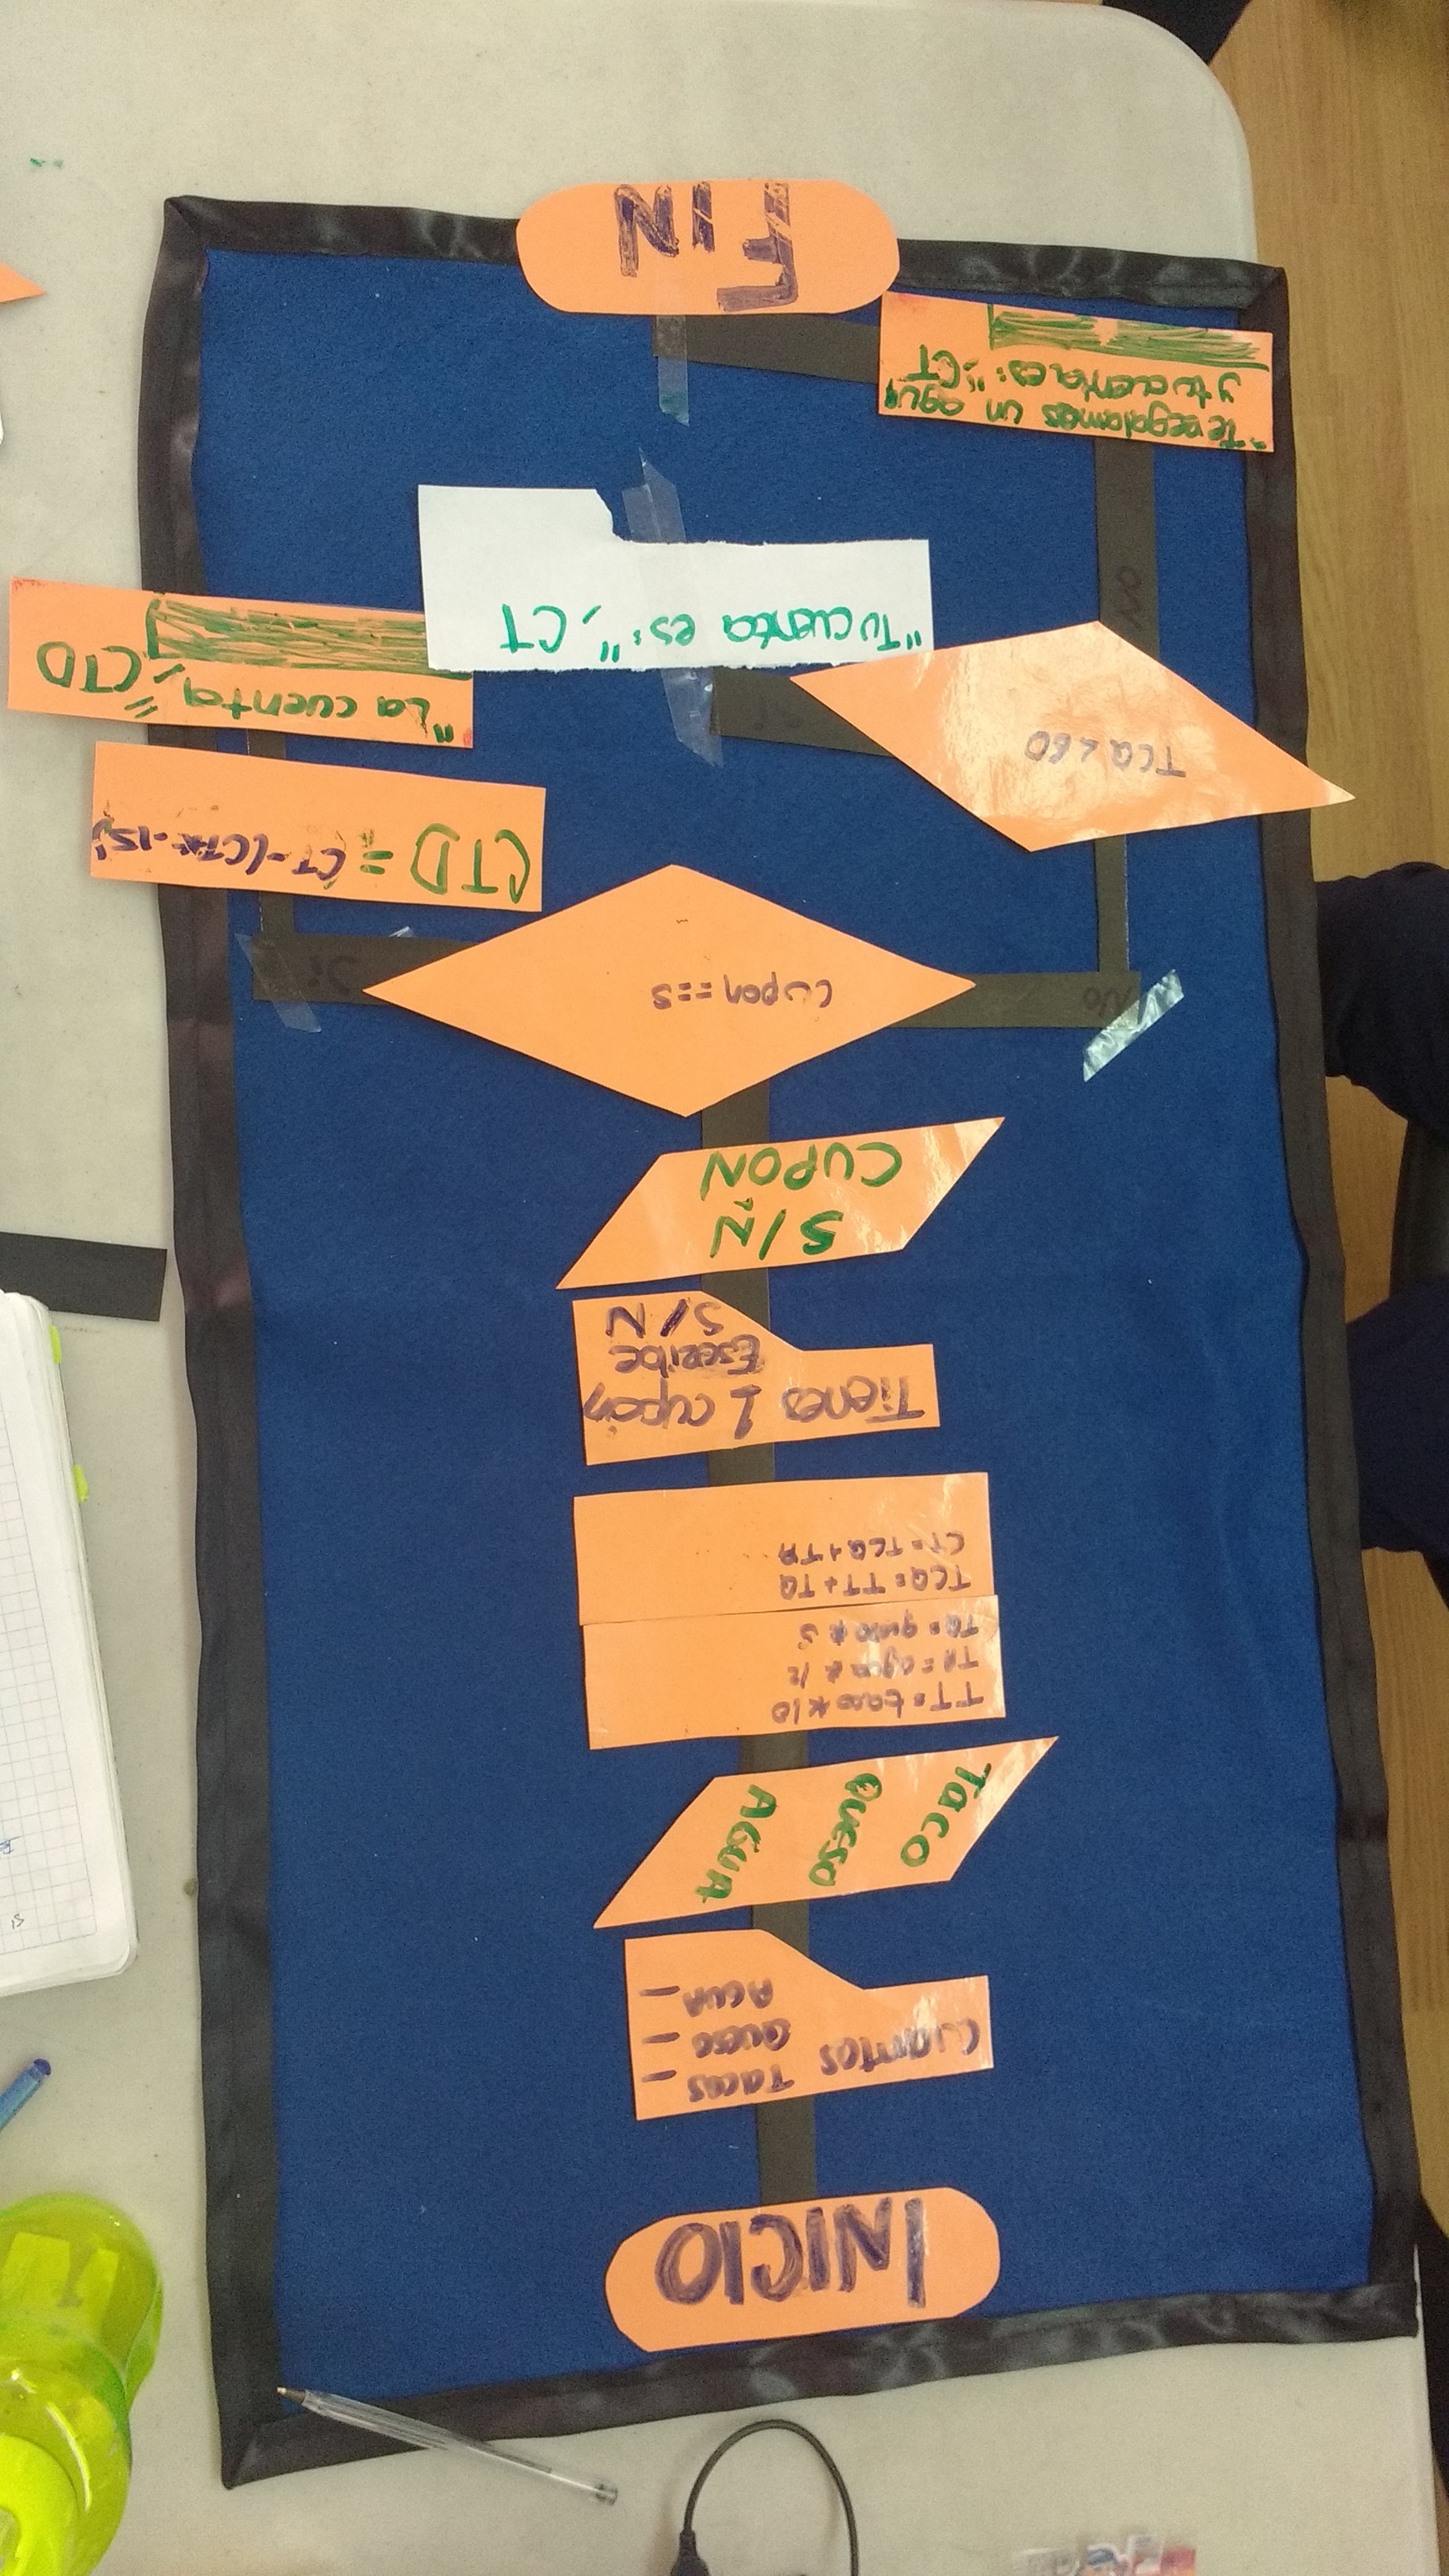 INICIO
Cuantos Tacos _
Queso _
AGUA _
Taco
Queso
AGUA
TT=taco*10
TA=agua*12
TQ=queso*5
TCQ=TT+TQ
CT=TCQ+TA
Tienes 1 cupón
Escribe
S/N
S/N
CUPON
Cupon==S
No
Si
CTD=
TCQ<80
"La cuenta", CTD
"Tu cuenta es:", CT
NO
SI
"Te regalamos un agua
y tu cuenta es:", CT
FIN